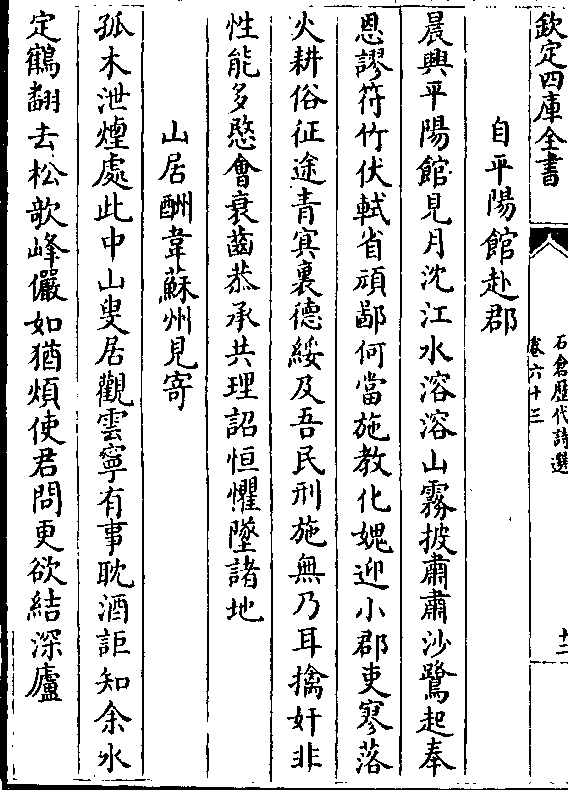 欽定四庫全書
石倉歷代詩選
卷六十三
十二
自平陽館赴郡
晨興平陽館見月沈江水溶溶山霧披肅肅沙鷺起奉
恩謬符竹伏軾省頑鄙何當施教化媿迎小郡吏寥落
火耕俗征途青冥裏德綏及吾民刑施無乃耳擒奸非
性能多愍會衰齒恭承共理詔恒懼墜諸地
山居酬韋蘇州見寄
孤木泄煙處此中山叟居觀雲寧有事耽酒詎知余水
定鶴翻去松歌峰儼如猶煩使君問更欲結深廬